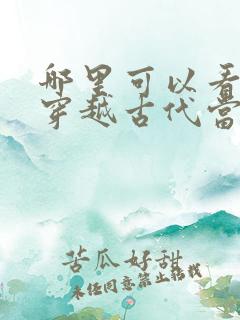 哪里可以看
穿越古代当
苦瓜好甜
未经同意禁止转载